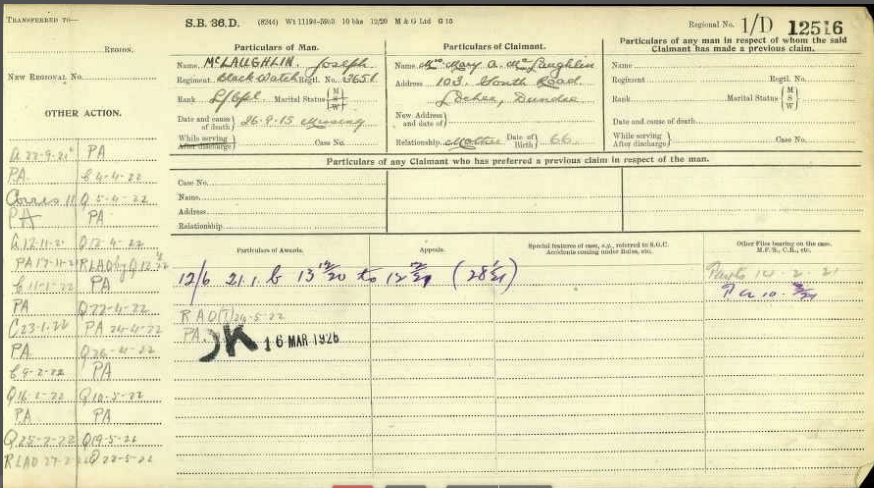 TRANSFERRED TO—
REGION.
NEW REGIONAL No.
OTHER ACTION.
S.B. 36.D. (8244) Wt 11194-5903 10 bks 12/20 M & G Ltd G 15
Regional No. 1/D 12516
Particulars of Man.
Name McLAUGHLIN. Joseph
Regiment Black Watch Regtl. No. 3651
Rank L/Cpl Marital Status { M S W }
Date and cause of death } 26-9-15 Missing
While serving After discharge } Case No.
Particulars of Claimant.
Name Mrs Mary A. McLaughlin
Address 103, South Road,
Lochee, Dundee
New Address and date of }
Relationship Mother Date of Birth } 66
Particulars of any man in respect of whom the said Claimant has made a previous claim.
Name
Regiment Regtl. No.
Rank Marital Status { M S W }
Date and cause of death
While serving After discharge } Case No.
Particulars of any Claimant who has preferred a previous claim in respect of the man.
Case No.
Name
Address
Relationship
Particulars of Awards.
Appeals.
Special features of case, e.g., referred to S.G.C. Accidents coming under Rules, etc.
Other Files bearing on the case. M.F.S., C.R., etc.
12/6 21.1.b 13 12/20 to 12 12/21 (28 1/21)
14.2.21
RAO (1) 24-5-22
PA.
OK 16 MAR 1926
Q 22-9-21 PA
PA. C 4-4-22
Q 5-4-22
PA PA
Q 12-11-21 Q 12-4-22
PA 17-11-21 RLAO
C 11-1-22 PA
PA Q 22-4-22
C 23-1-22 PA 24-4-22
PA. Q 26-4-22
C 9-2-22 PA
Q 16-2-22 Q 10-5-22
PA PA
Q 25-2-22 Q 19-5-22
RLAO 27-2-22 Q 22-5-22